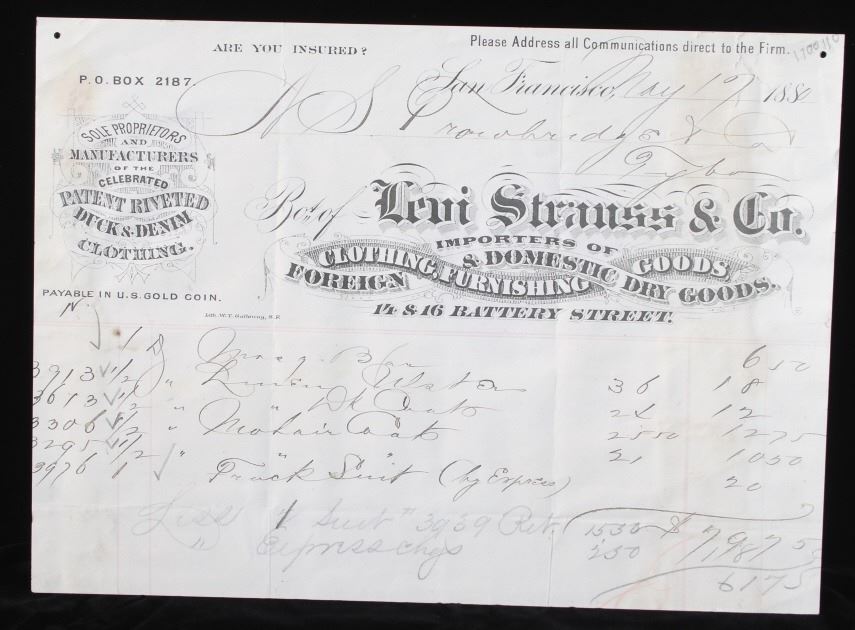 ARE YOU INSURED?
Please Address all Communications direct to the Firm.
P.O. BOX 2187.
San Francisco, May 19 1880
N S Trowbridge & Co
Tybo
SOLE PROPRIETORS
AND
MANUFACTURERS
OF THE
CELEBRATED
PATENT RIVETED
DUCK & DENIM
CLOTHING.
PAYABLE IN U.S. GOLD COIN.
Bot of Levi Strauss & Co.
IMPORTERS OF
CLOTHING, FURNISHING & DOMESTIC GOODS
FOREIGN DRY GOODS.
14 & 16 BATTERY STREET.
Lith. W.T. Galloway, S.F.
1 650
3913 1/2 " Linen Ulster 36 18
3613 1/2 " " Coats 24 12
3306 1/2 " Mohair Coats 2550 1275
3295 1/2 " " " 21 1050
3976 1 Frock Suit (by Express) 20
Less 1 Suit " 3939 Ret. 1550 $ 7975
" express chgs 250
6175